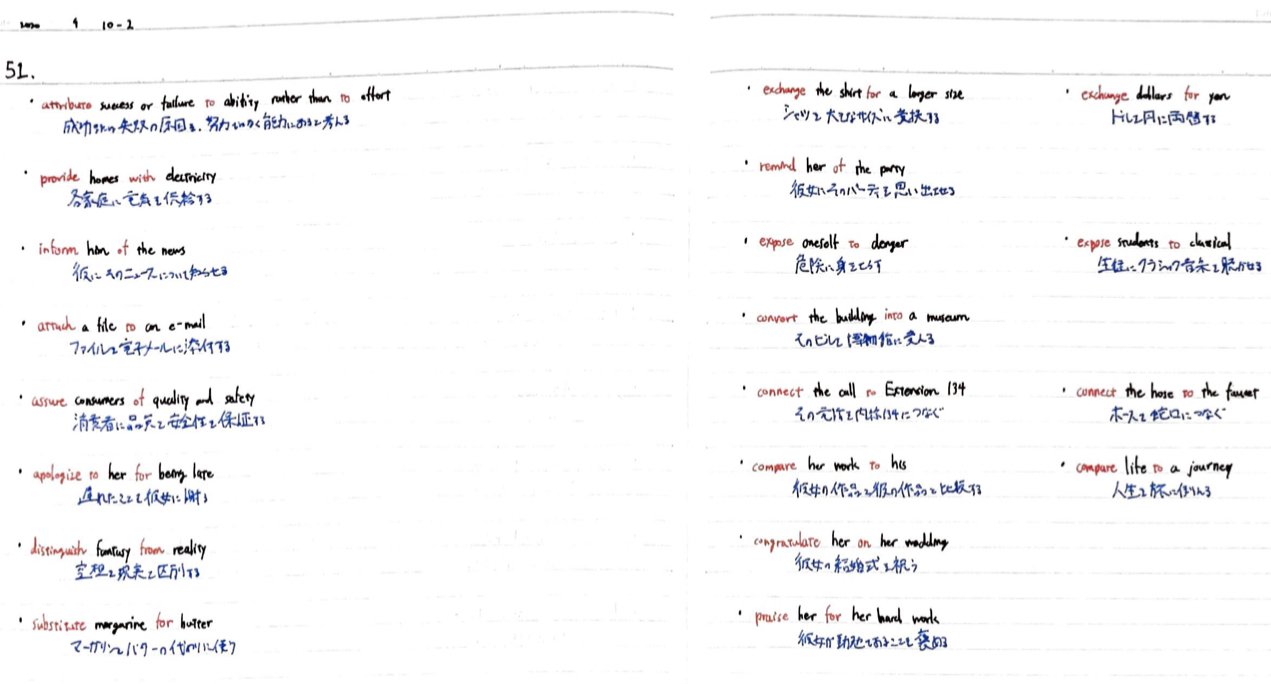 2020 9 10-2
51.
・attribute success or failure to ability rather than to effort
成功や失敗の原因を、努力でなく能力にあると考える
・provide homes with electricity
各家庭に電気を供給する
・inform him of the news
彼にそのニュースについて知らせる
・attach a file to an e-mail
ファイルを電子メールに添付する
・assure consumers of quality and safety
消費者に品質と安全性を保証する
・apologize to her for being late
遅れたことを彼女に謝る
・distinguish fantasy from reality
空想と現実を区別する
・substitute margarine for butter
マーガリンをバターの代わりに使う
・exchange the shirt for a larger size
シャツを大きなサイズに交換する
・exchange dollars for yen
ドルを円に両替する
・remind her of the party
彼女にそのパーティを思い出させる
・expose oneself to danger
危険に身をさらす
・expose students to classical
生徒にクラシック音楽を聴かせる
・convert the building into a museum
そのビルを博物館に変える
・connect the call to Extension 134
その電話を内線134につなぐ
・connect the hose to the faucet
ホースを蛇口につなぐ
・compare her work to his
彼女の作品を彼の作品と比較する
・compare life to a journey
人生を旅に例える
・congratulate her on her wedding
彼女の結婚式を祝う
・praise her for her hard work
彼女が勤勉であることを褒める